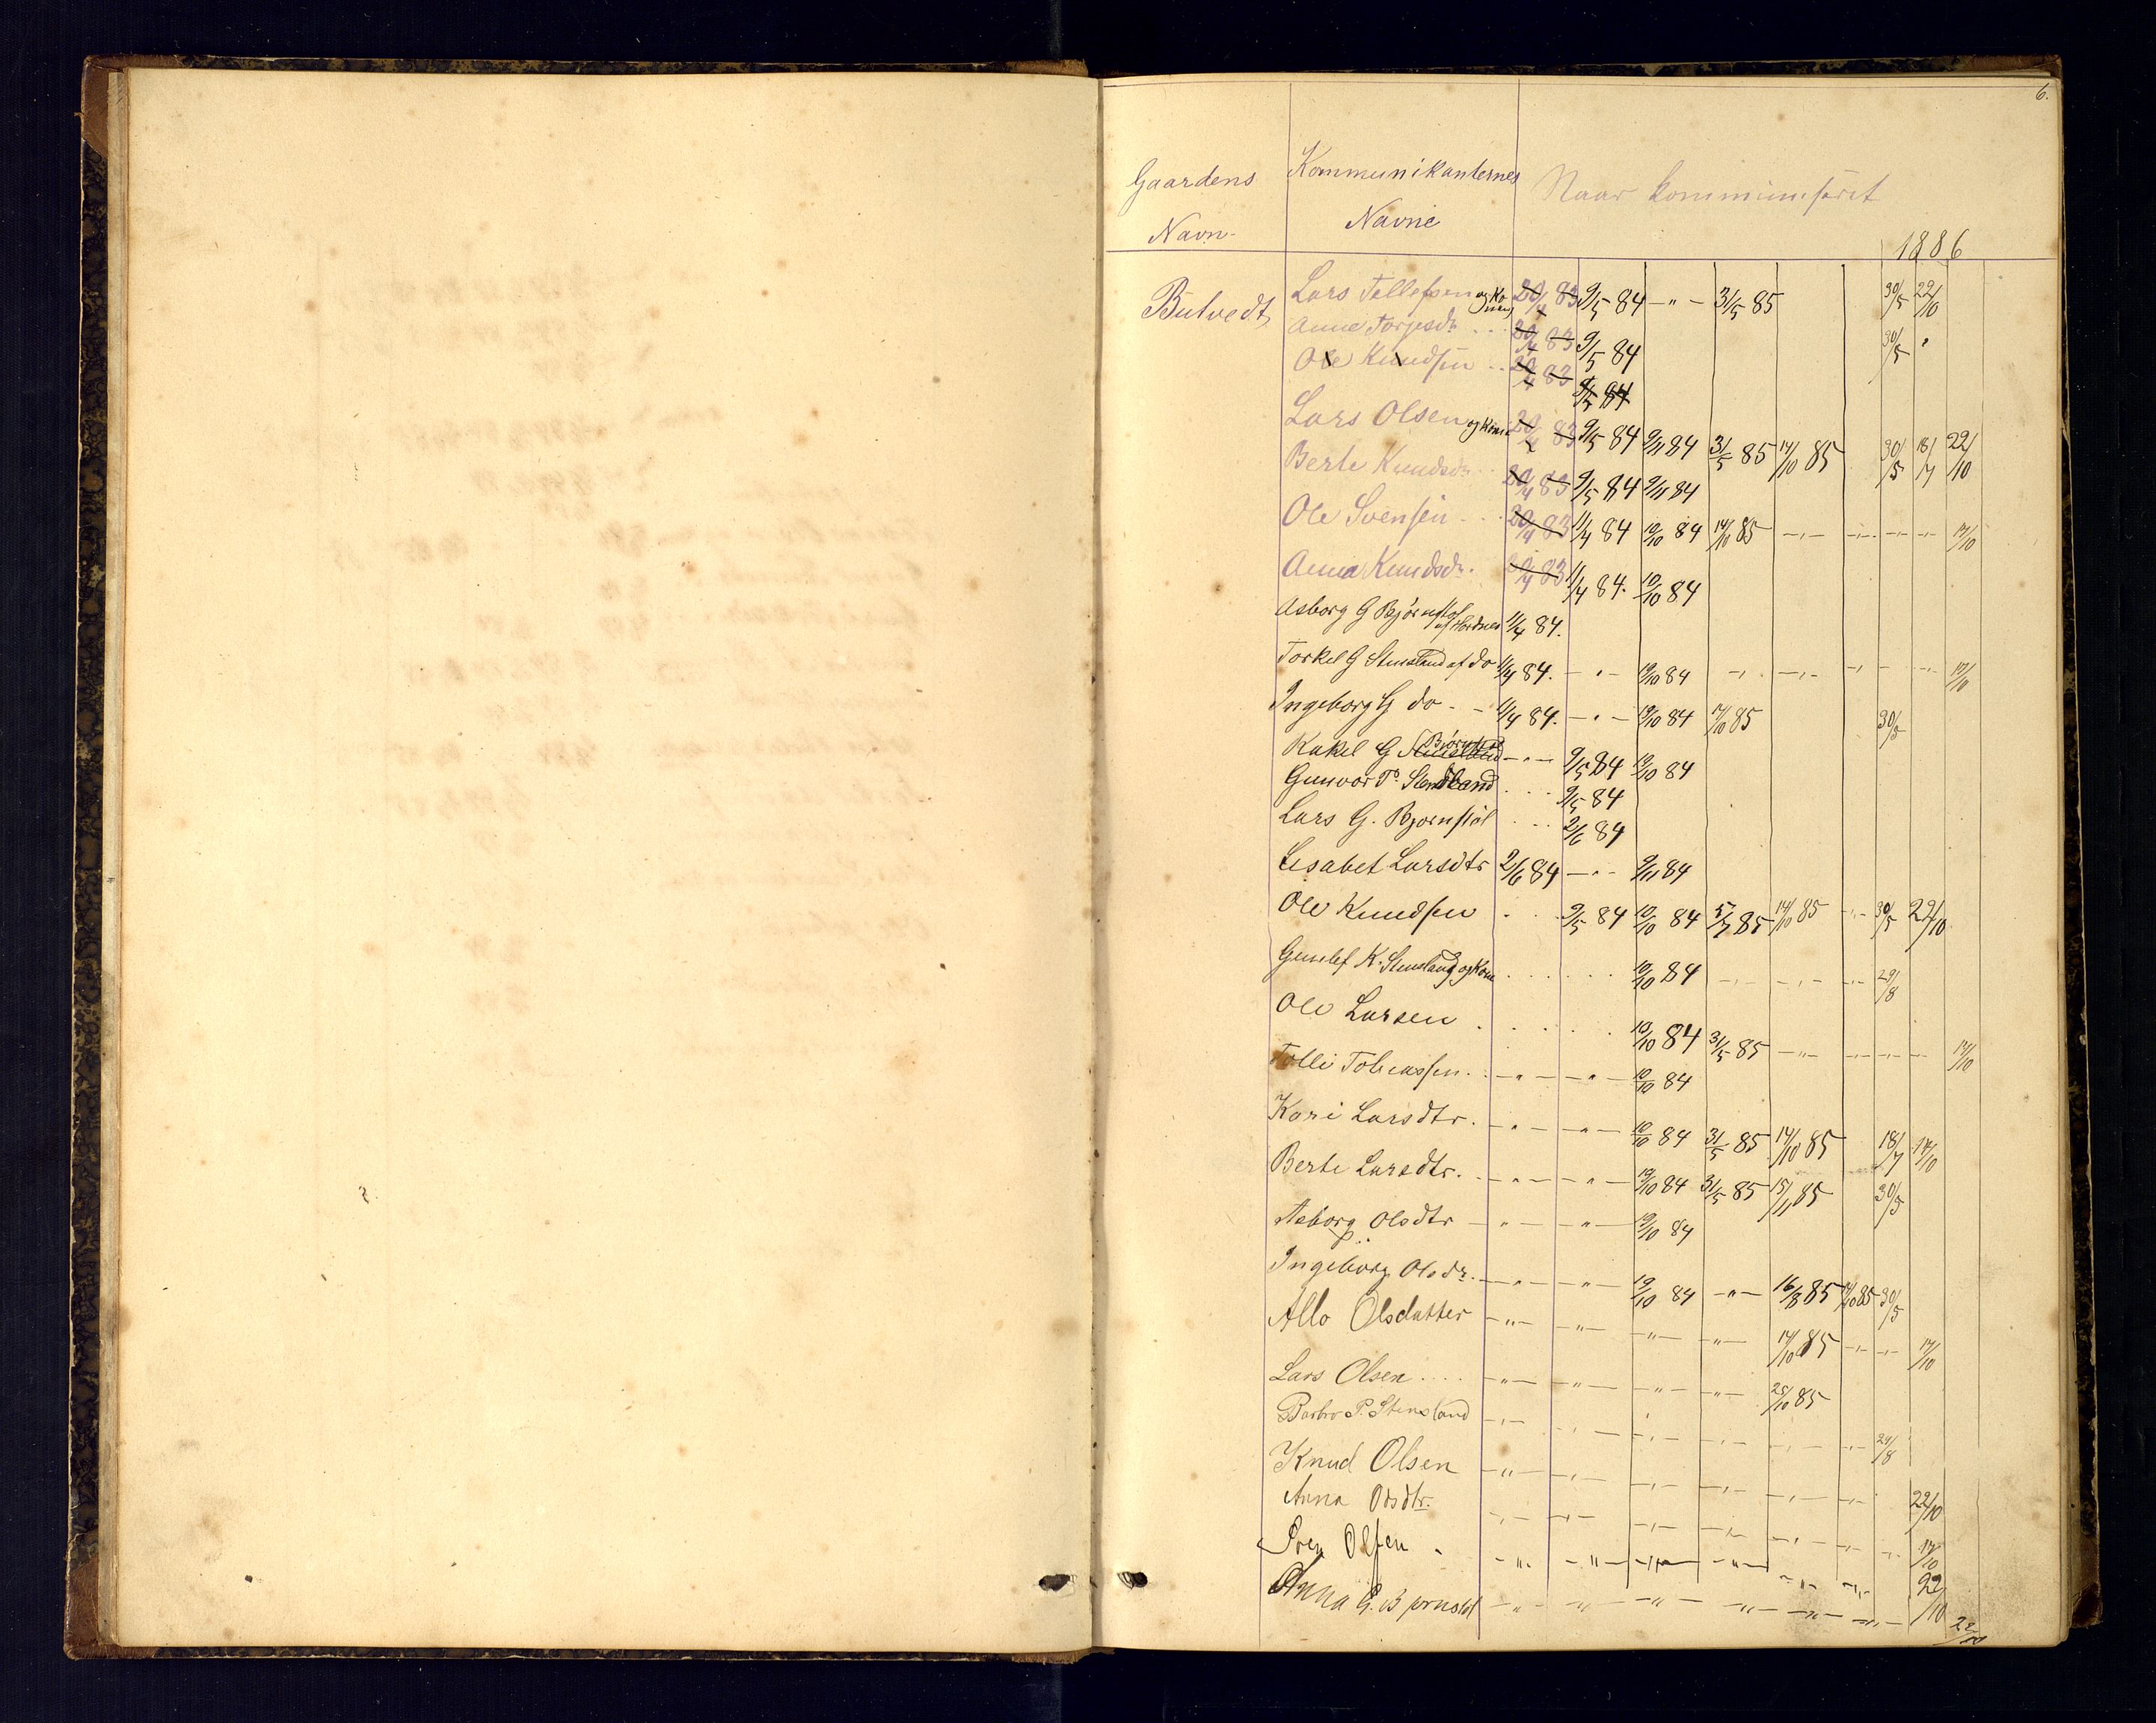 6.
Gaardens Navn. Kommunikanternes Navne Naar kommuniseret
1886
Butvedt Lars Tellefsen og Konen 20/4 83 9/5 84 — " — 31/5 85 30/5 22/10
Anne Torjusdr. . . . 20/4 83 9/5 84 30/5 "
Ole Knudsen . . 20/4 83 9/5 84
Lars Olsen og Kone 20/4 83 9/5 84 9/11 84 31/5 85 14/10 85 30/5 18/7 22/10
Berte Knudsdr. . . 20/4 83 9/5 84 9/11 84
Ole Svensen . . . 20/4 83 1/4 84 10/10 84 14/10 85 — " — — " — — " — — " — 17/10
Anna Knudsdr. 20/4 83 1/4 84. 10/10 84
Asborg G Bjørnstøl af Hordnes 1/4 84.
Torkel G Stensland af do 1/4 84. — " — 10/10 84 — " — — " — — " — — — " — 17/10
Ingeborg G do . — 1/4 84. — " — 10/10 84 14/10 85 30/5
Rakel G Stensland Bjørnstøl — " — 9/5 84 10/10 84
Gunvor T. Stensland . . . 9/5 84
Lars G. Bjornstöl . . . 2/6 84
Lisabet Larsdtr 2/6 84 — " — 9/11 84
Ole Knudsen . . . 9/5 84 10/10 84 5/7 85 14/10 85 — " — 30/5 22/10
Gunlef K. Stensland og Kone . . . . . . 10/10 84 — " — — " — — " — 29/8
Ole Larsen . . . . . . 10/10 84 31/5 85 — " — — " — — " — — " — 17/10
Tolli Tobiassen . . — " — — " — 10/10 84
Kari Larsdtr. . — " — — " — 10/10 84 31/5 85 14/10 85 18/7 17/10
Berte Larsdtr. . — " — — " — 10/10 84 31/5 85 15/11 85 30/5
Asborg Olsdtr — " — — " — 10/10 84
Ingeborg Olsdr. — " — — " — 10/10 84 — " — 16/8 85 14/10 85 30/5
Allo Olsdatter — " — — " — — " — — " — 14/10 85 — " — — " — 17/10
Lars Olsen . . . . — " — — " — — " — — " — 25/10 85
Barbro P. Stensland — " — — " — — " — — " — — " — — " — 29/8
Knud Olsen — " — — " — — " — — " — — " — — " — 22/10
Anna Olsdtr. — " — — " — — " — — " — — " — — " — — " — 17/10
Sven Olsen . — " — — " — — " — — " — — " — — " — 22/10
Anna G. Bjørnstöl — " — — " — — " — — " — — " — — " — 22/10